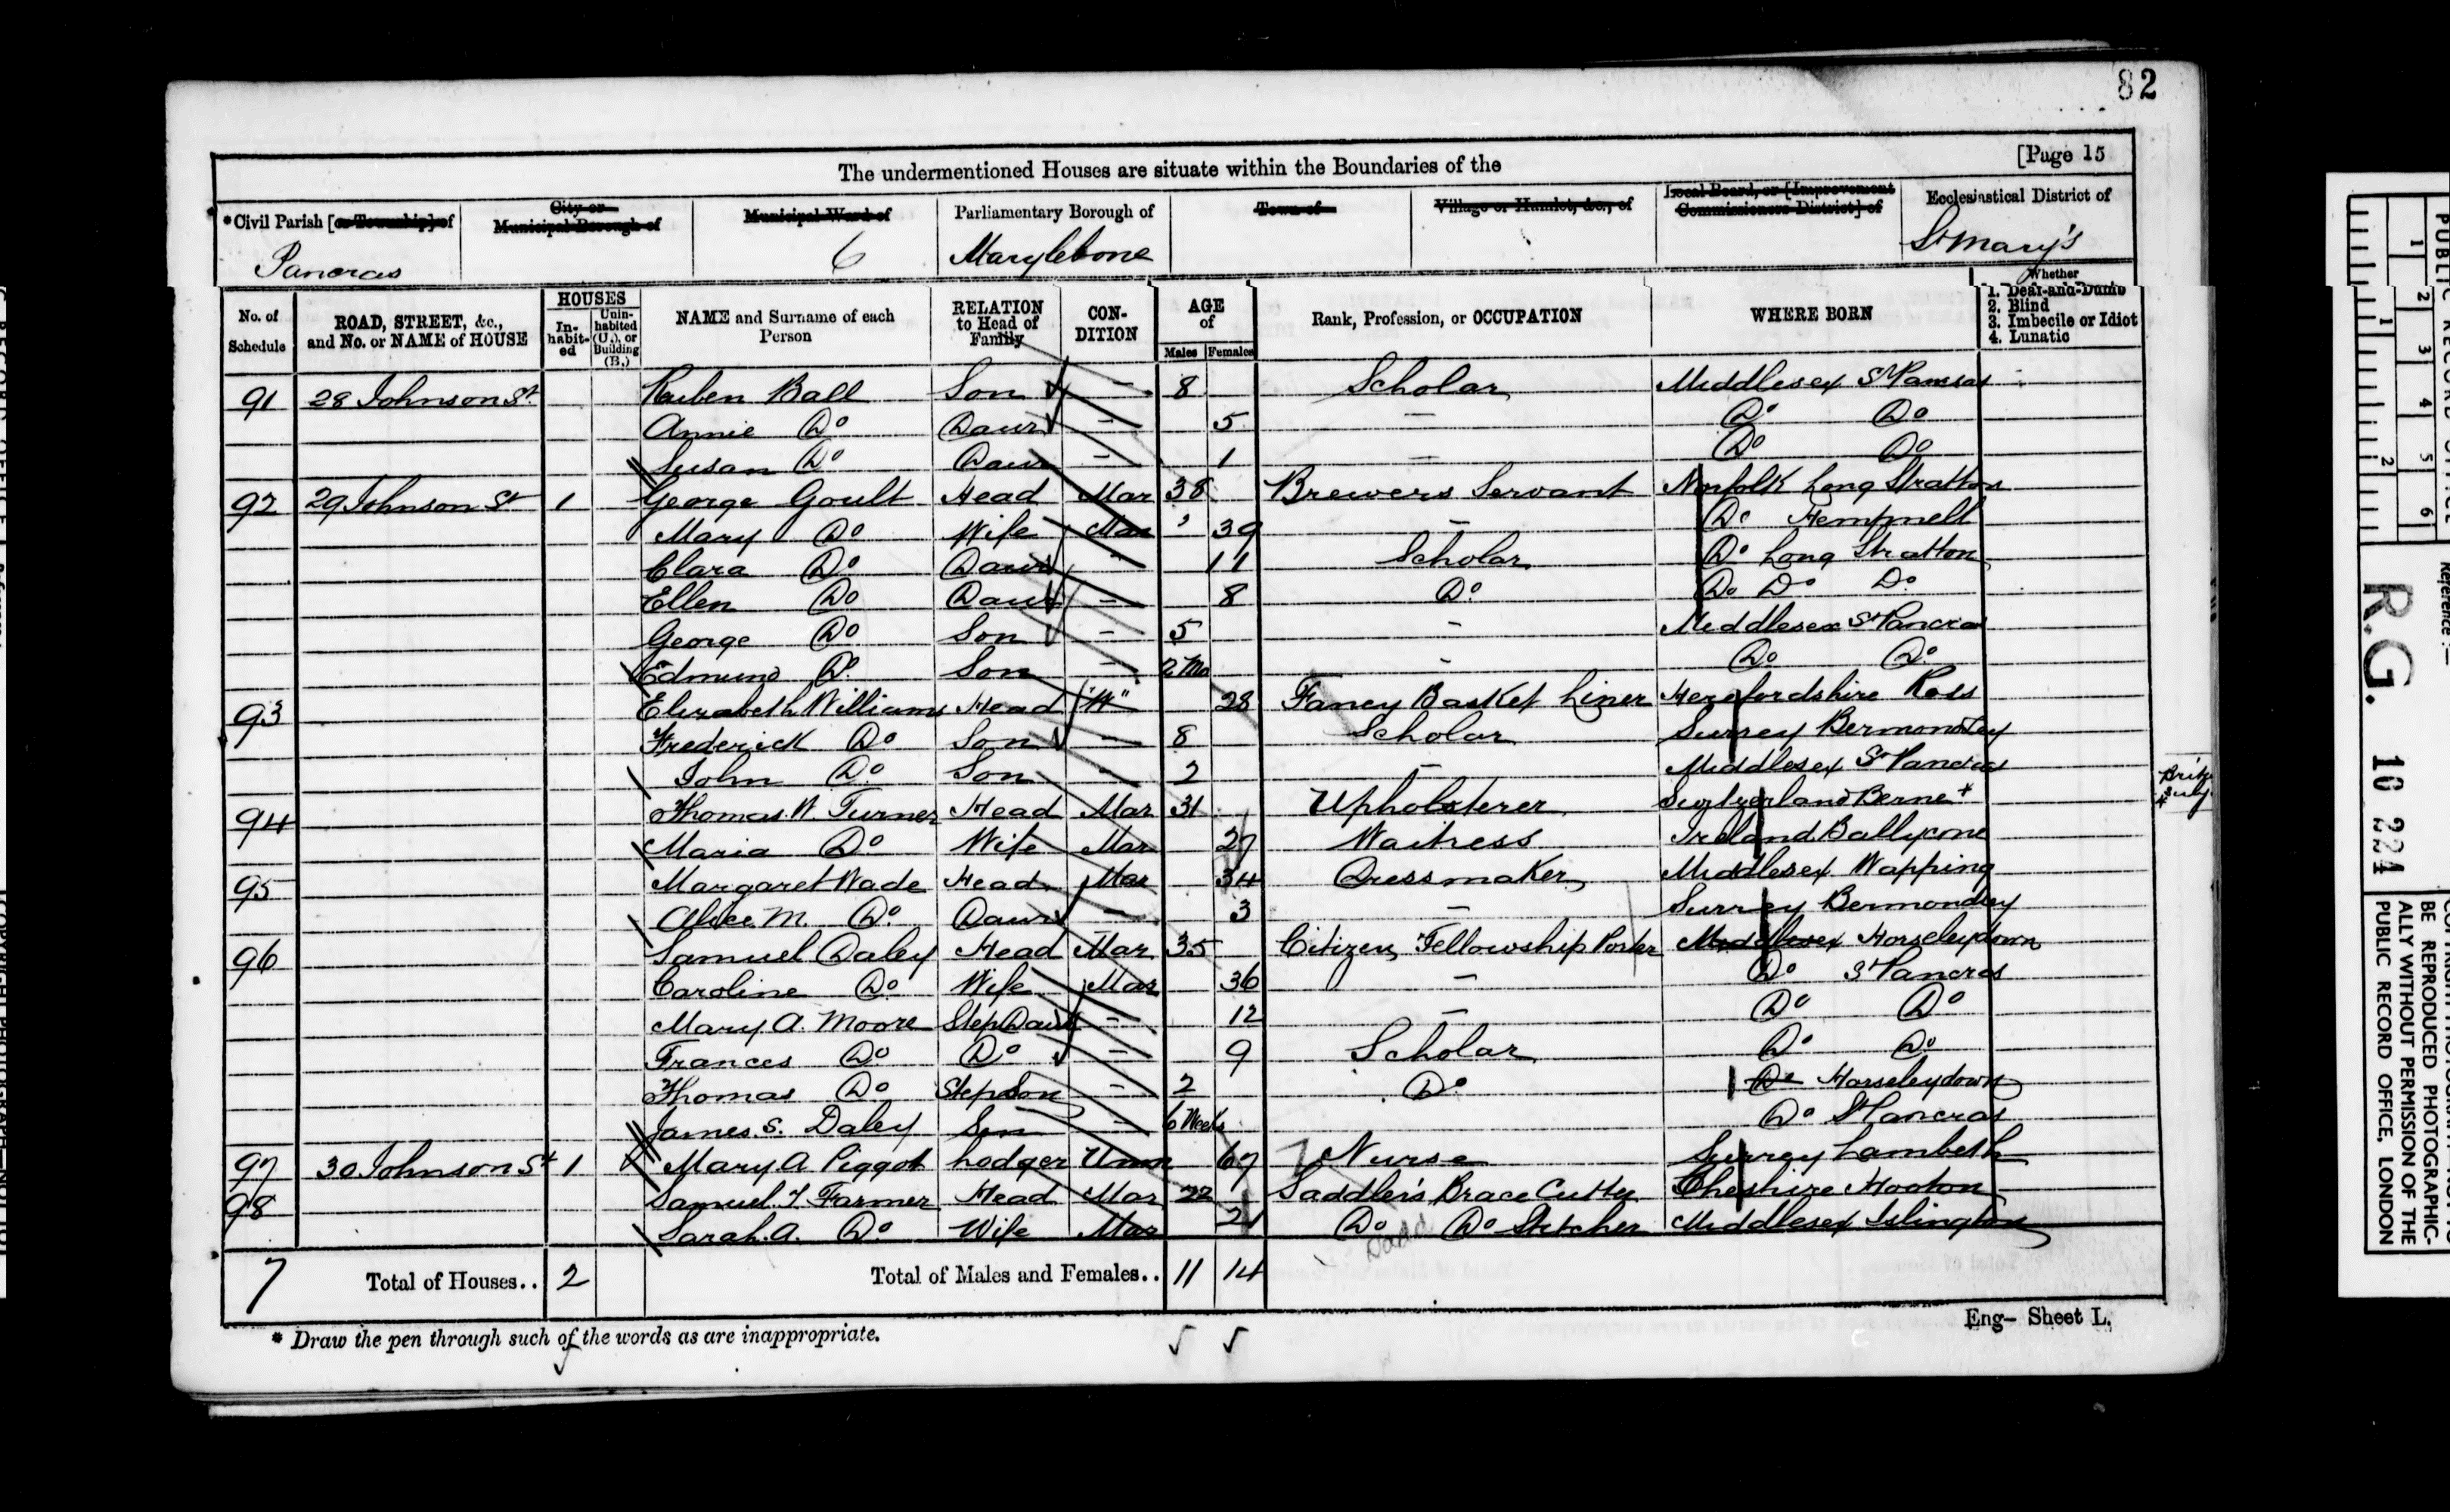 82
[Page 15
The undermentioned Houses are situate within the Boundaries of the
*Civil Parish [or Township] of
City or Municipal Borough of
Municipal Ward of
Parliamentary Borough of
Town of
Village or Hamlet, &c., of
Local Board, or [Improvement Commissioners District] of
Ecclesiastical District of
Pancras 6 Marylebone St Mary's
No. of Schedule
ROAD, STREET, &c., and No. or NAME of HOUSE
HOUSES
In-habit-ed
Unin-habited (U.), or Building (B.)
NAME and Surname of each Person
RELATION to Head of Family
CON-DITION
AGE of
Males Females
Rank, Profession, or OCCUPATION
WHERE BORN
Whether
1. Deaf-and-Dumb
2. Blind
3. Imbecile or Idiot
4. Lunatic
91 28 Johnson St Reuben Ball Son - 8 Scholar Middlesex St Pancras
Annie Do Daur - 5 - Do Do
Susan Do Daur - 1 - Do Do
92 29 Johnson St 1 George Goult Head Mar 38 Brewers Servant Norfolk Long Stratton
Mary Do Wife Mar 39 - Do Hempnell
Clara Do Daur - 11 Scholar Do Long Stratton
Ellen Do Daur - 8 Do Do Do Do
George Do Son - 5 - Middlesex St Pancras
Edmund Do Son - 2 Mo - Do Do
93 Elizabeth Williams Head "W" 28 Fancy Basket Liner Herefordshire Ross
Frederick Do Son - 8 Scholar Surrey Bermondsey
John Do Son - 2 - Middlesex St Pancras
94 Thomas W. Turner Head Mar 31 Upholsterer Switzerland Berne *
Maria Do Wife Mar 27 Waitress Ireland
95 Margaret Wade Head Mar 34 Dressmaker Middlesex Wapping
Alice M. Do Daur - 3 - Surrey Bermondsey
96 Samuel Daley Head Mar 35 Citizen, Fellowship Porter Middlesex Horseleydown
Caroline Do Wife Mar 36 - Do St Pancras
Mary A. Moore StepDaur - 12 - Do Do
Frances Do Do - 9 Scholar Do Do
Thomas Do Stepson - 2 Do Do Horseleydown
James S. Daley Son - 6 Weeks Do St Pancras
97 30 Johnson St 1 Mary A Piggot Lodger Unm 67 Nurse Surrey Lambeth
98 Samuel Farmer Head Mar 22 Saddler's Brace Cutter Cheshire Hooton
Sarah A. Do Wife Mar 21 Do Do Stitcher Middlesex Islington
7 Total of Houses.. 2 Total of Males and Females.. 11 14
* Draw the pen through such of the words as are inappropriate.
Eng- Sheet L.
PUBLIC RECORD OFFICE
1 2 3 4 5 6
1 2
Reference:-
R.G. 10 224
COPYRIGHT PHOTOGRAPH-NOT TO
BE REPRODUCED PHOTOGRAPHIC-
ALLY WITHOUT PERMISSION OF THE
PUBLIC RECORD OFFICE, LONDON